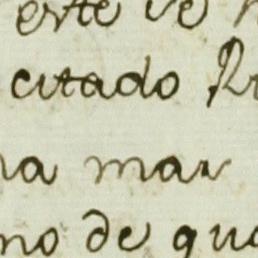 este ve
citado R
na mar
no de qua